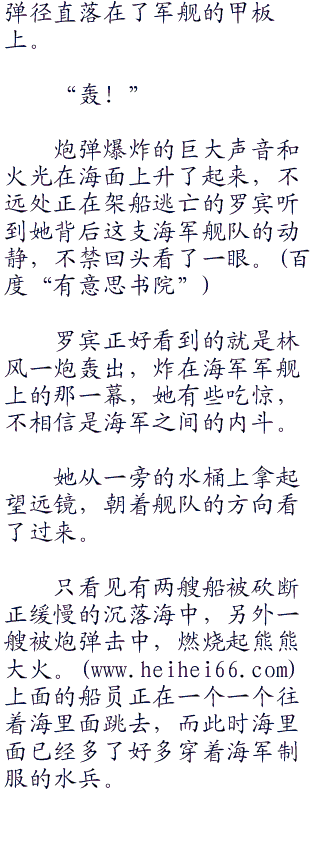 弹径直落在了军舰的甲板
上。
“轰！”
炮弹爆炸的巨大声音和
火光在海面上升了起来，不
远处正在架船逃亡的罗宾听
到她背后这支海军舰队的动
静，不禁回头看了一眼。(百
度“有意思书院”)
罗宾正好看到的就是林
风一炮轰出，炸在海军军舰
上的那一幕，她有些吃惊，
不相信是海军之间的内斗。
她从一旁的水桶上拿起
望远镜，朝着舰队的方向看
了过来。
只看见有两艘船被砍断
正缓慢的沉落海中，另外一
艘被炮弹击中，燃烧起熊熊
大火。(www.heihei66.com)
上面的船员正在一个一个往
着海里面跳去，而此时海里
面已经多了好多穿着海军制
服的水兵。